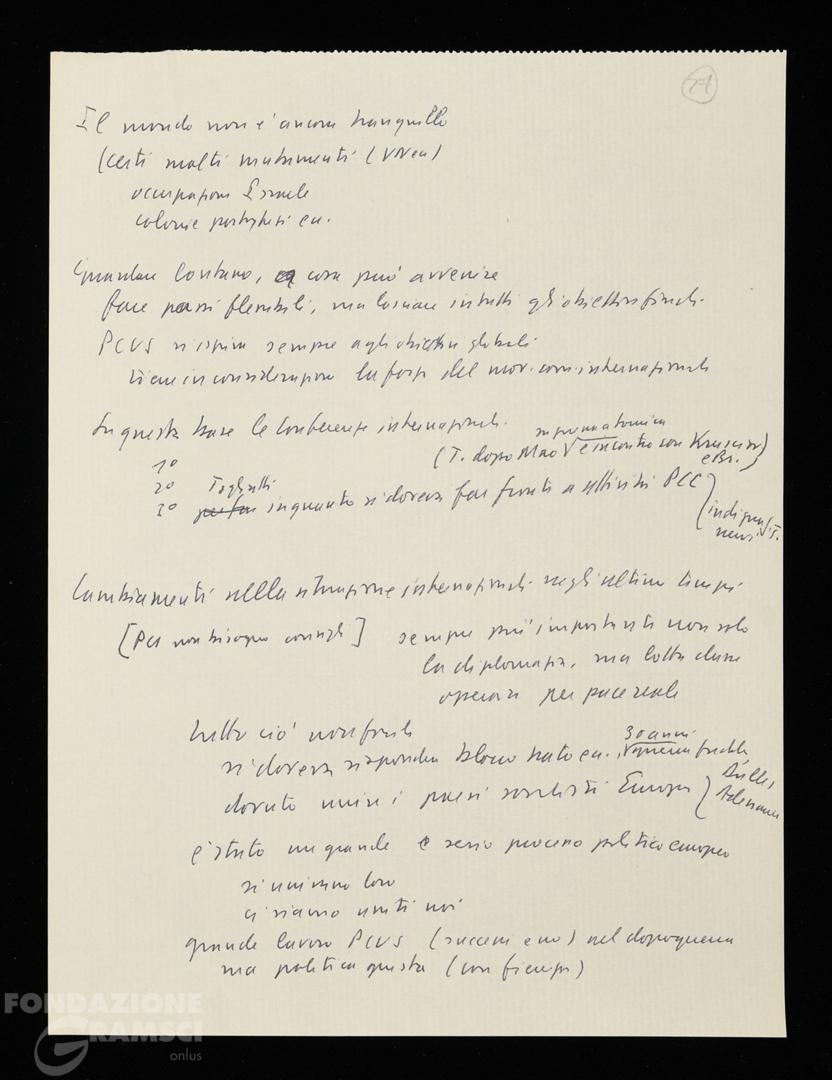 21
Il mondo non è ancora tranquillo
(certi molti mutamenti (
occupazione Israele
colonie portoghesi ecc.
Guardare lontano, cosa può avvenire
fare passi flessibili, ma lasciare intatti gli obiettivi finali.
PCUS si ispira sempre agli obiettivi globali
tiene in considerazione la forza del mov. com. internazionale
Su questa base le Conferenze internazionali.
1º
2º Togliatti
3º in quanto si doveva far fronte a attività PCC
(T. dopo Mao e incontro con Kruscev
e Br.)
T.
Cambiamenti nella situazione internazionale negli ultimi tempi
[PCI non bisogno consigli] sempre più importante non solo
la diplomazia, ma lotta classe
operaia per pace reale
tutto ciò non facile
si doveva rispondere blocco nato ecc. 30 anni guerra fredda
dovuto unire i paesi socialisti Europa Dulles,
Adenauer
è stato un grande e serio processo politico europeo
si univano loro
ci siamo uniti noi
grande lavoro PCUS (successi e no) nel dopoguerra
ma politica giusta (con fierezza)
FONDAZIONE
GRAMSCI
onlus